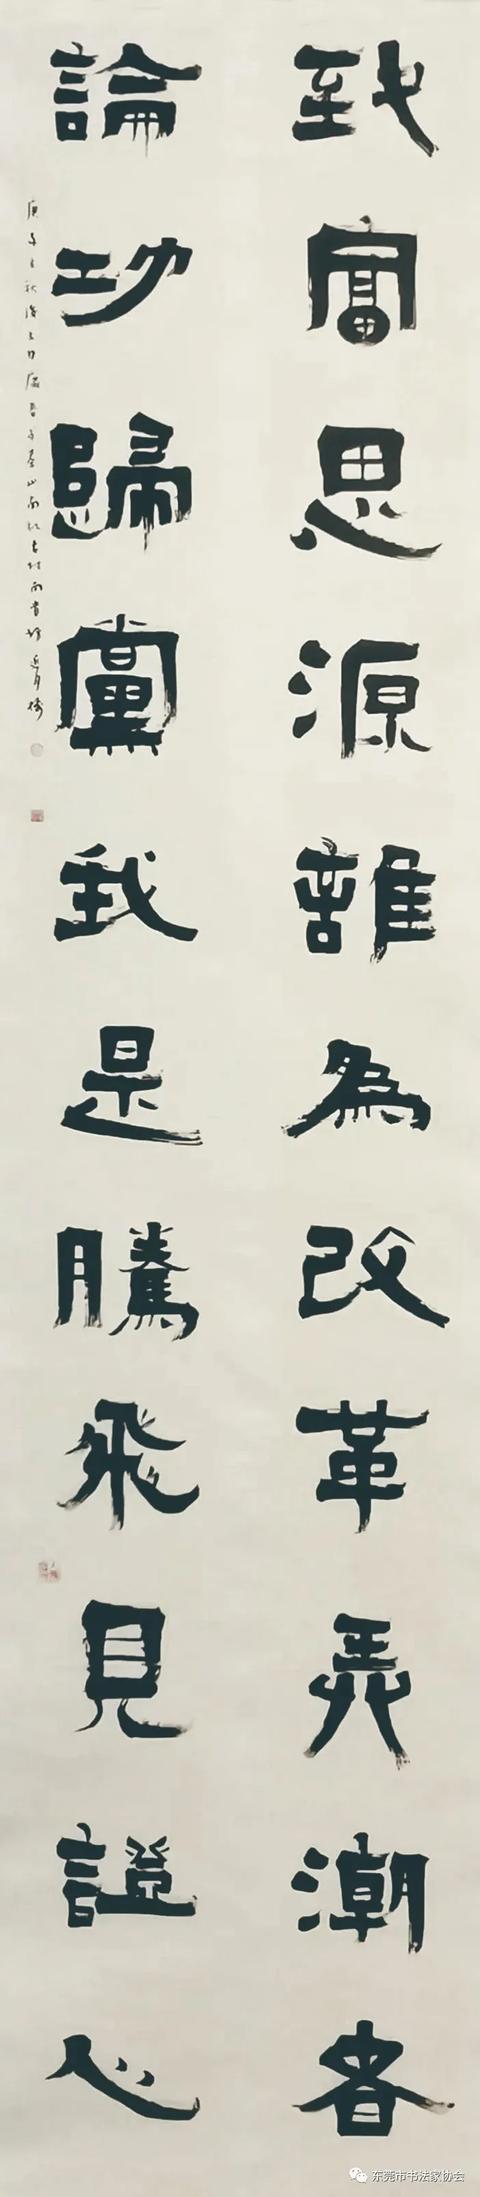 致富思源誰為改革弄潮者
論功歸黨我是騰飛見證人
庚子之秋
东莞市书法家协会